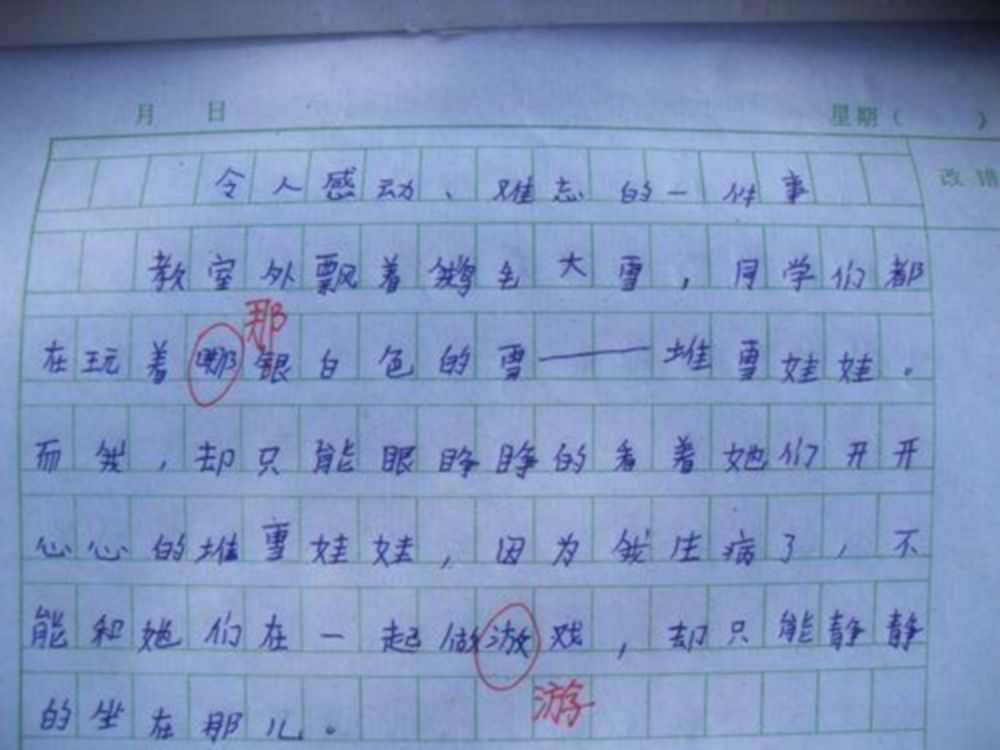 月 日 星期( )
改错
令人感动、难忘的一件事
教室外飘着鹅毛大雪,同学们都
那
在玩着哪银白色的雪——堆雪娃娃。
而我,却只能眼睁睁的看着她们开开
心心的堆雪娃娃,因为我生病了,不
能和她们在一起做游戏,却只能静静
游
的坐在那儿。